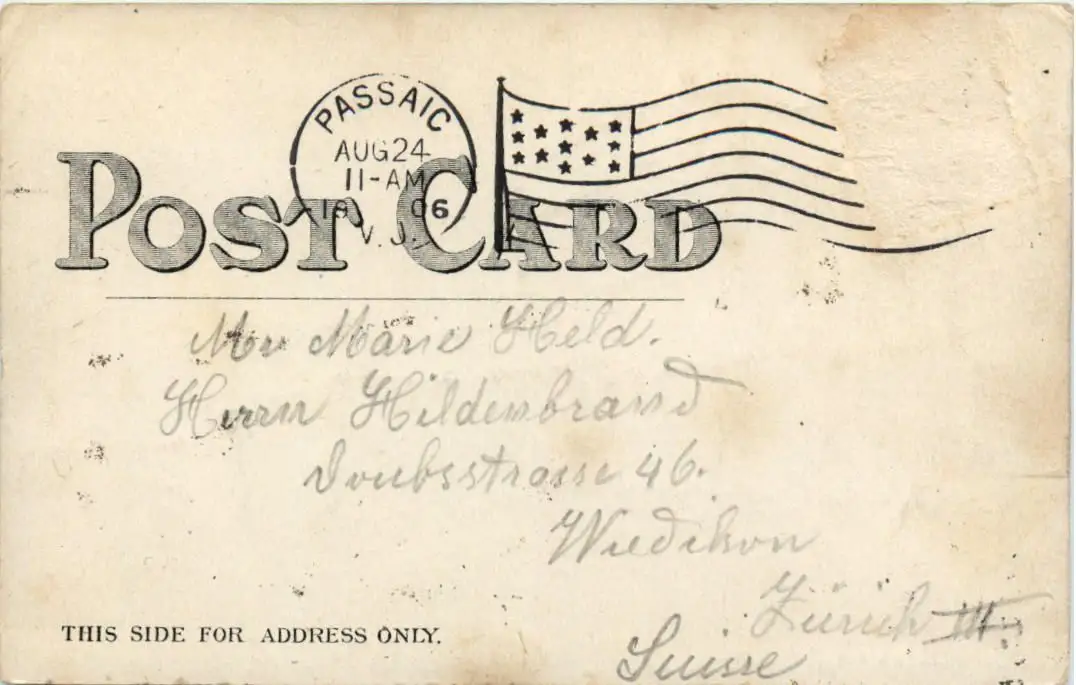 PASSAIC
AUG 24
11-AM
19 06
N.J.
POST CARD
Mr Marie Held.
Herrn Hildenbrand
Doubsstrasse 46.
Wiedikon
Zürich III.
Suisse
THIS SIDE FOR ADDRESS ONLY.